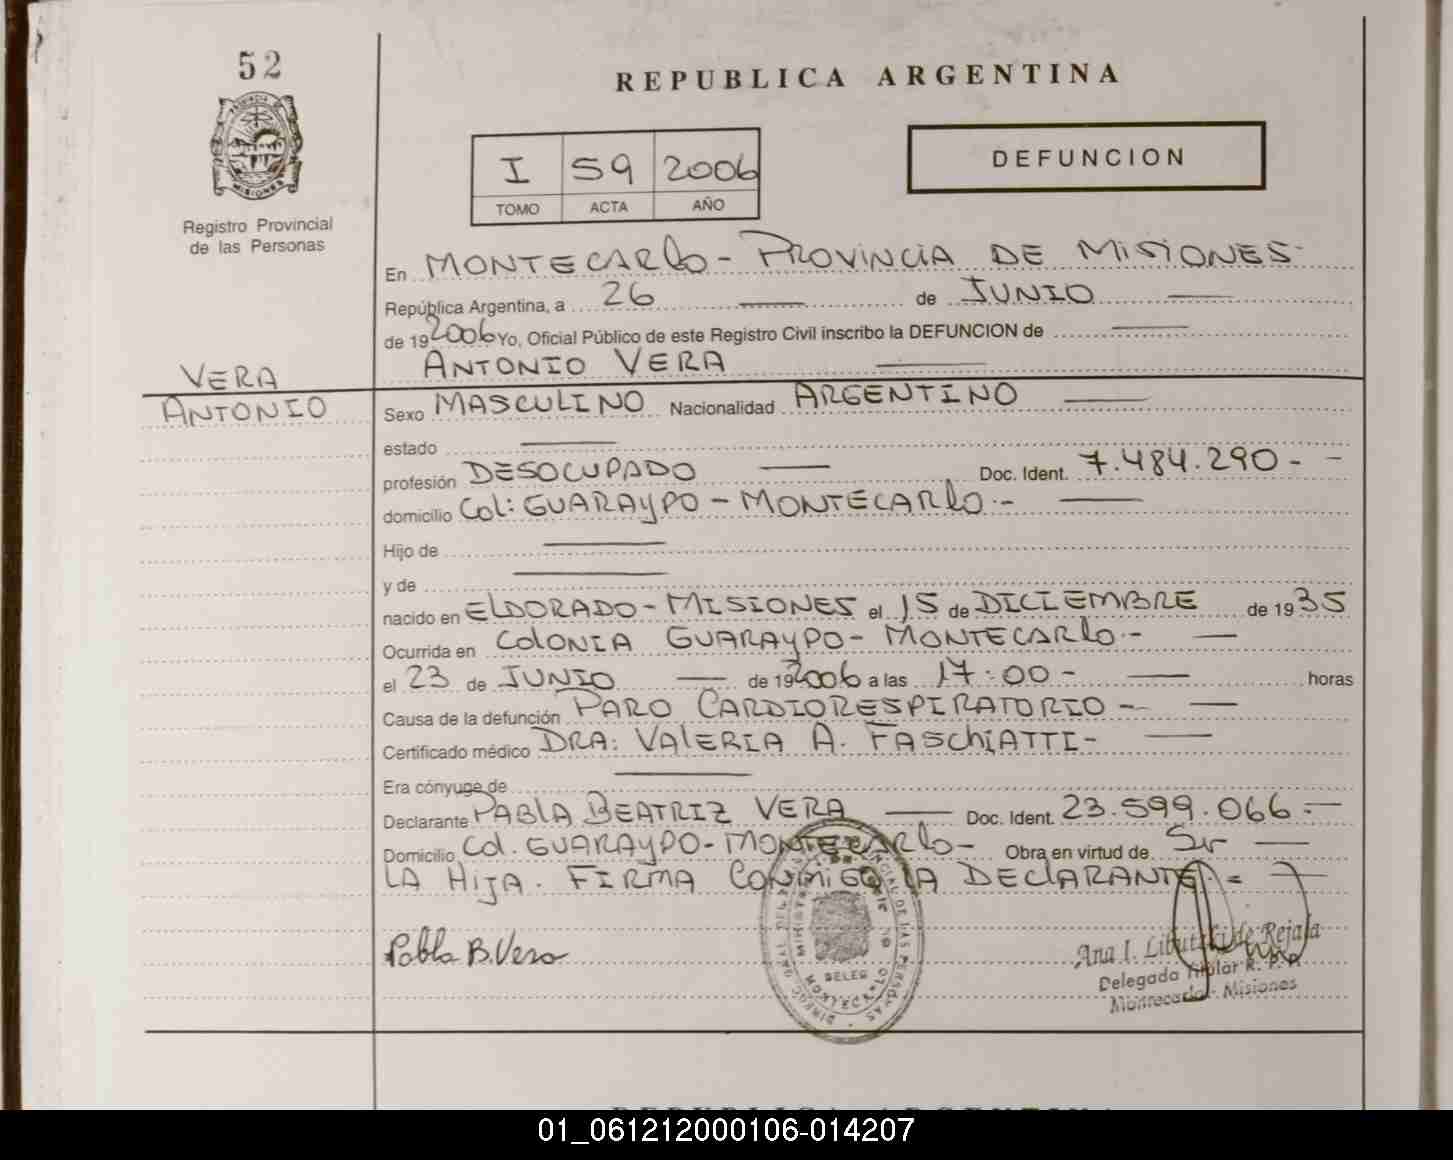 52
REPUBLICA ARGENTINA
I 59 2006
TOMO ACTA AÑO
DEFUNCION
Registro Provincial
de las Personas
En MONTECARLO - PROVINCIA DE MISIONES-
República Argentina, a 26 de JUNIO
de 19 2006 Yo, Oficial Público de este Registro Civil inscribo la DEFUNCION de
ANTONIO VERA
VERA
ANTONIO
Sexo MASCULINO Nacionalidad ARGENTINO
estado
profesión DESOCUPADO Doc. Ident. 7.484.290-
domicilio Col: GUARAYPO - MONTECARLO.-
Hijo de
y de
nacido en ELDORADO - MISIONES el 15 de DICIEMBRE de 1935
Ocurrida en COLONIA GUARAYPO - MONTECARLO.-
el 23 de JUNIO de 19 2006 a las 17:00- horas
Causa de la defunción PARO CARDIORESPIRATORIO -
Certificado médico DRA: VALERIA A. FASCHIATTI-
Era cónyuge de
Declarante PABLA BEATRIZ VERA Doc. Ident. 23.599.066.-
Domicilio Col. GUARAYPO - MONTECARLO - Obra en virtud de Sr
LA HIJA. FIRMA CONMIGO LA DECLARANTE.=
Pabla B. Vera
Ana I. de Rejala
Delegada Titular R. P. P.
Montecarlo - Misiones
01_061212000106-014207